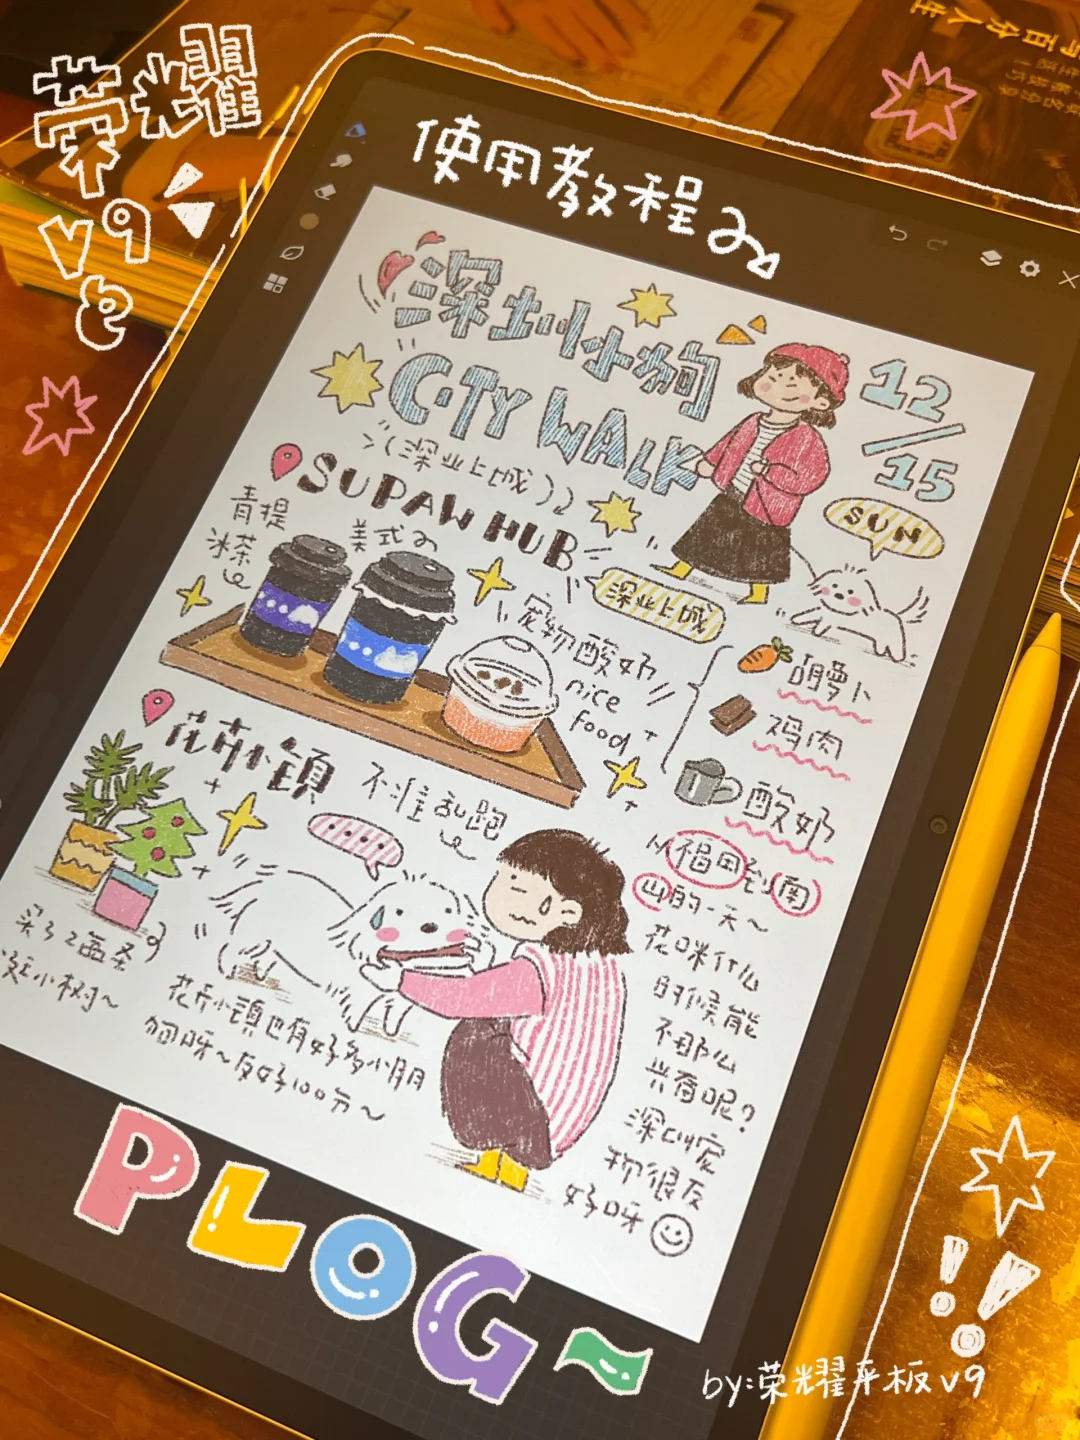 荣耀
V9
使用教程
百分人生
深圳小狗
CITY WALK
12/15
(深业上城)
SUPAW HUB
SUN
青提
冰茶
美式
深业上城
宠物酸奶
nice
food
胡萝卜
鸡肉
酸奶
花卉小镇
不准乱跑
从福田到南
山的一天~
花咪什么
时候能
不那么
兴奋呢?
深圳宠
物很友
好呀
买了2盆圣
诞小树~
花卉小镇也有好多小朋
友好100分~
PLOG~
!!
by:荣耀平板V9